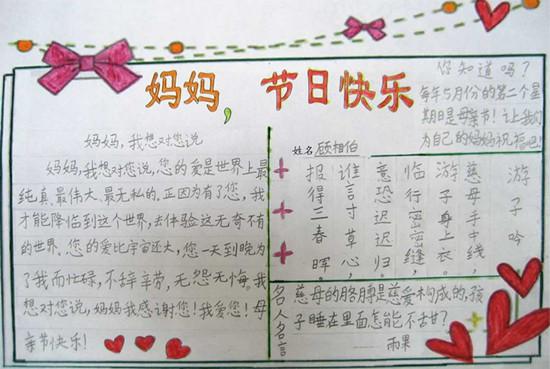 妈妈，节日快乐
你知道吗？
每年5月份的第二个星
期日是母亲节！让我们
为自己的妈妈祝福吧！
妈妈，我想对您说
妈妈，我想对您说，您的爱是世界上最
纯真、最伟大、最无私的。正因为有了您，我
才能降临到这个世界，去体验这无奇不有
的世界。您的爱比宇宙还大，您一天到晚为
了我而忙碌，不辞辛劳，无怨无悔。我
想对您说，妈妈我感谢您！我爱您！母
亲节快乐！
姓名 顾相伯
游子吟
慈母手中线，
游子身上衣。
临行密密缝，
意恐迟迟归。
谁言寸草心，
报得三春晖。
名人名言
慈母的胳膊是慈爱构成的，孩
子睡在里面怎能不甜？
雨果